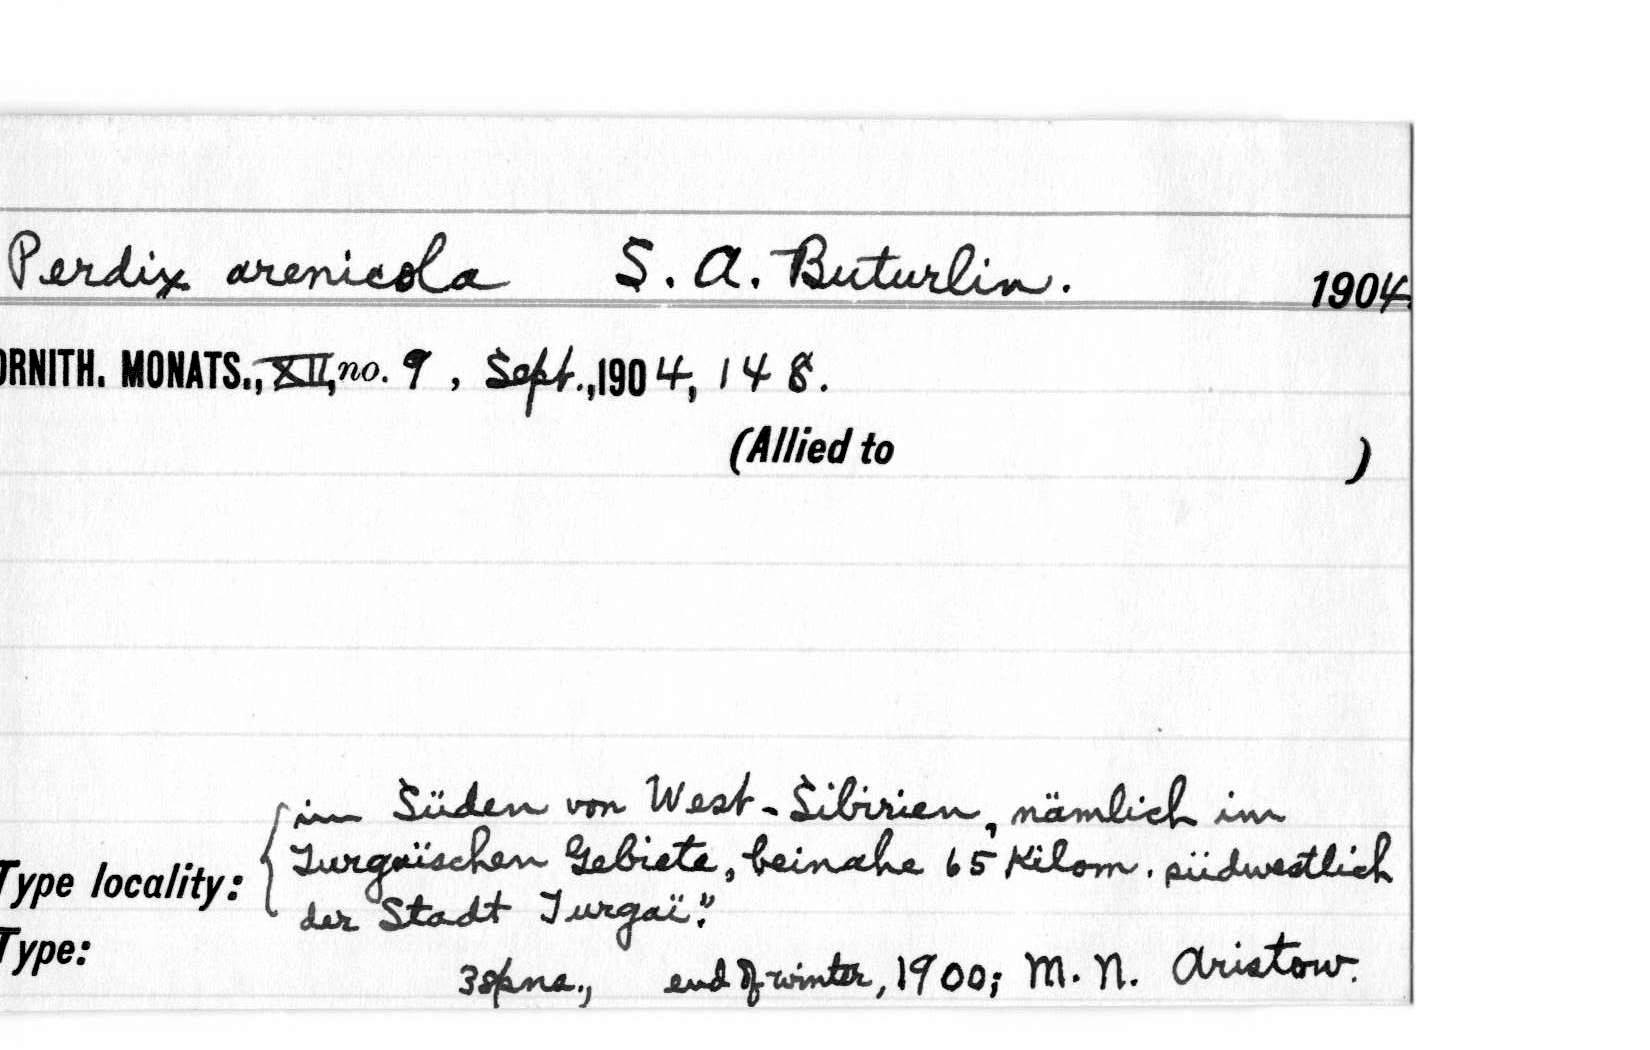 Perdix arenicola S. A. Buturlin. 1904.
ORNITH. MONATS., XII, no. 9, Sept., 1904, 148.
(Allied to )
im Süden von West-Sibirien, nämlich im
Turgaïschen Gebiete, beinahe 65 Kilom. südwestlich
Type locality:
der Stadt Turgaï".
Type:
3 spns., end of winter, 1900; M. N. Aristow.